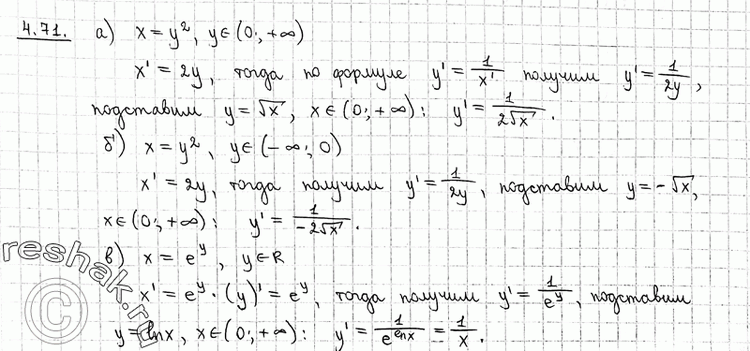 4.71. а) x = y², y∈(0; +∞)
x' = 2y, тогда по формуле y' = 1/x' получим y' = 1/2y,
подставим y = √x, x∈(0; +∞): y' = 1/2√x.
б) x = y², y∈(-∞; 0)
x' = 2y, тогда получим y' = 1/2y, подставим y = -√x,
x∈(0; +∞): y' = 1/-2√x.
в) x = e^y, y∈R
x' = e^y · (y)' = e^y, тогда получим y' = 1/e^y, подставим
y = lnx, x∈(0; +∞): y' = 1/e^lnx = 1/x.
reshak.ru
©